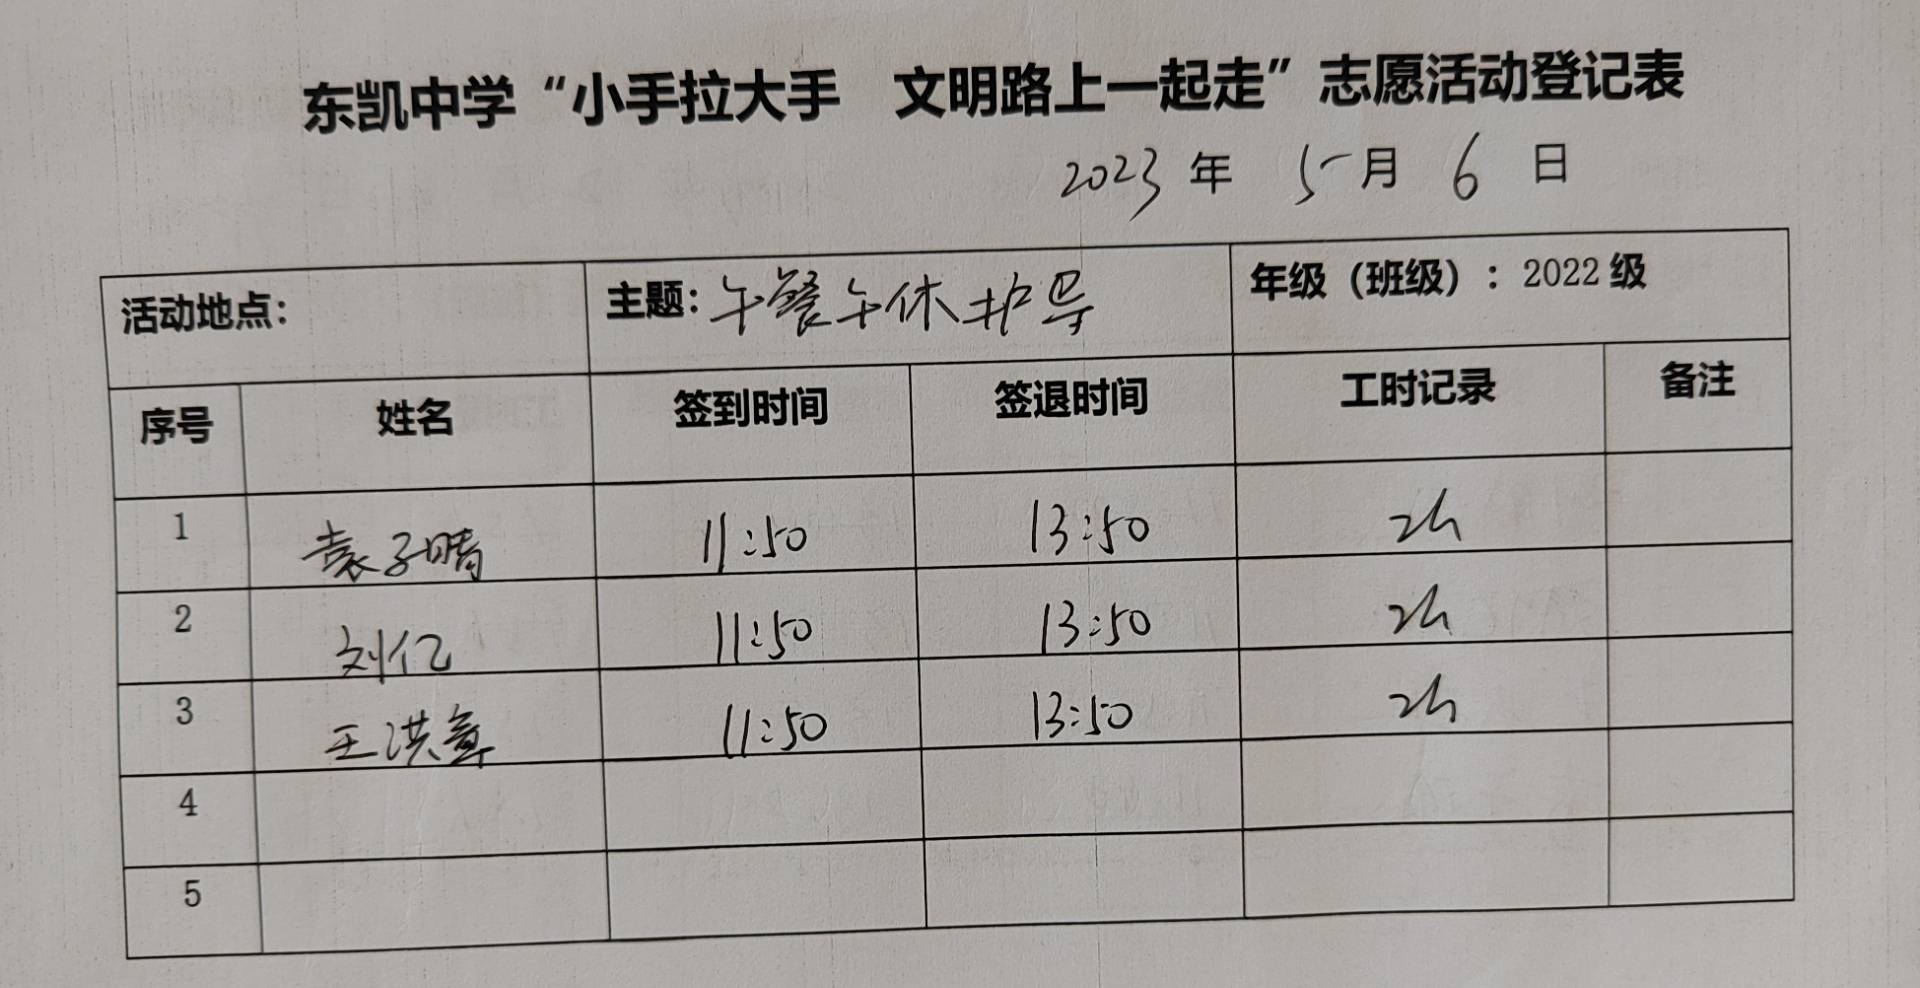 东凯中学“小手拉大手 文明路上一起走”志愿活动登记表
2023 年 5 月 6 日
活动地点： 主题：午餐午休护导 年级（班级）：2022 级
序号 姓名 签到时间 签退时间 工时记录 备注
1 袁子晴 11:50 13:50 2h
2 刘亿 11:50 13:50 2h
3 王洪章 11:50 13:50 2h
4
5